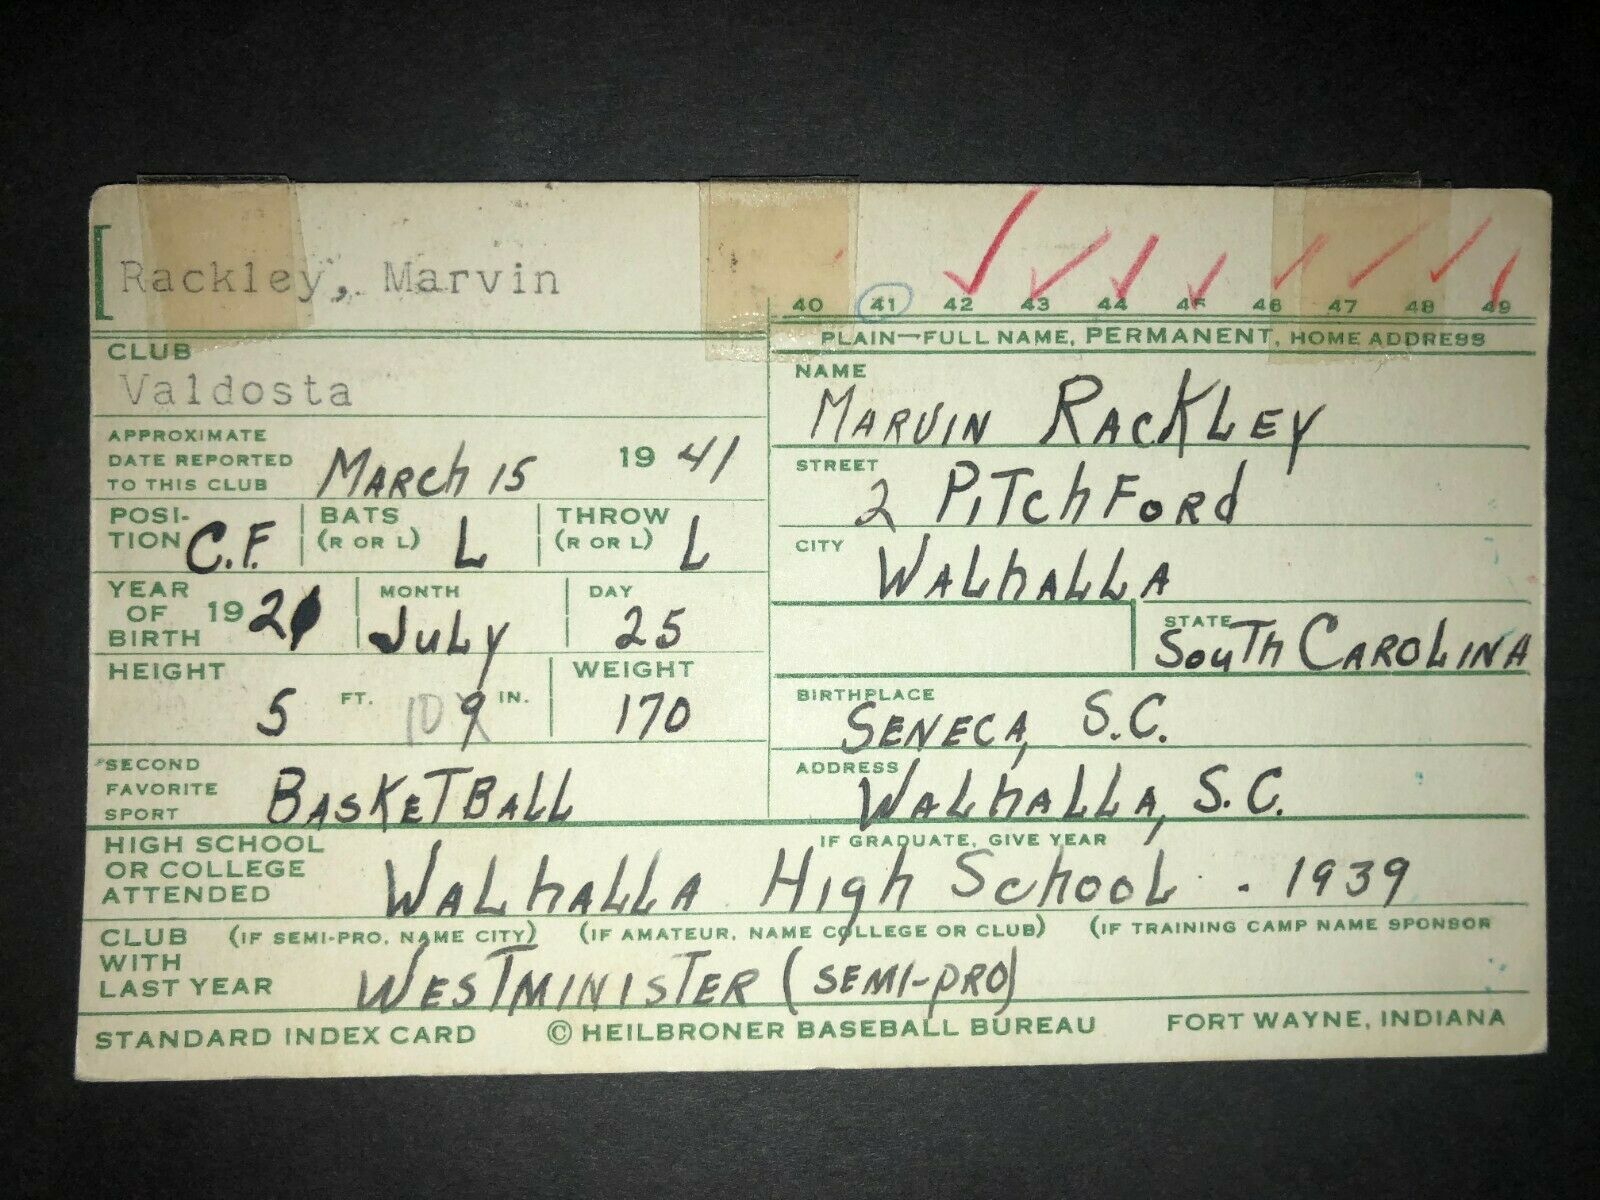 Rackley, Marvin
40 41 42 43 44 45 46 47 48 49
PLAIN—FULL NAME, PERMANENT, HOME ADDRESS
CLUB
Valdosta
NAME
MARVIN RACKLEY
APPROXIMATE
DATE REPORTED
TO THIS CLUB
MARCH 15 19 41
STREET
2 PITCHFORD
POSI-
TION C.F.
BATS
(R OR L) L
THROW
(R OR L) L
CITY
WALHALLA
YEAR
OF
BIRTH 19 21
MONTH
JULY
DAY
25
STATE
SOUTH CAROLINA
HEIGHT
5 FT. 10 9 IN.
WEIGHT
170
BIRTHPLACE
SENECA, S.C.
SECOND
FAVORITE
SPORT BASKETBALL
ADDRESS
WALHALLA, S.C.
HIGH SCHOOL
OR COLLEGE
ATTENDED
IF GRADUATE, GIVE YEAR
WALHALLA HIGH SCHOOL . 1939
CLUB
WITH
LAST YEAR
(IF SEMI-PRO, NAME CITY) (IF AMATEUR, NAME COLLEGE OR CLUB) (IF TRAINING CAMP NAME SPONSOR
WESTMINISTER (SEMI-PRO)
STANDARD INDEX CARD © HEILBRONER BASEBALL BUREAU FORT WAYNE, INDIANA